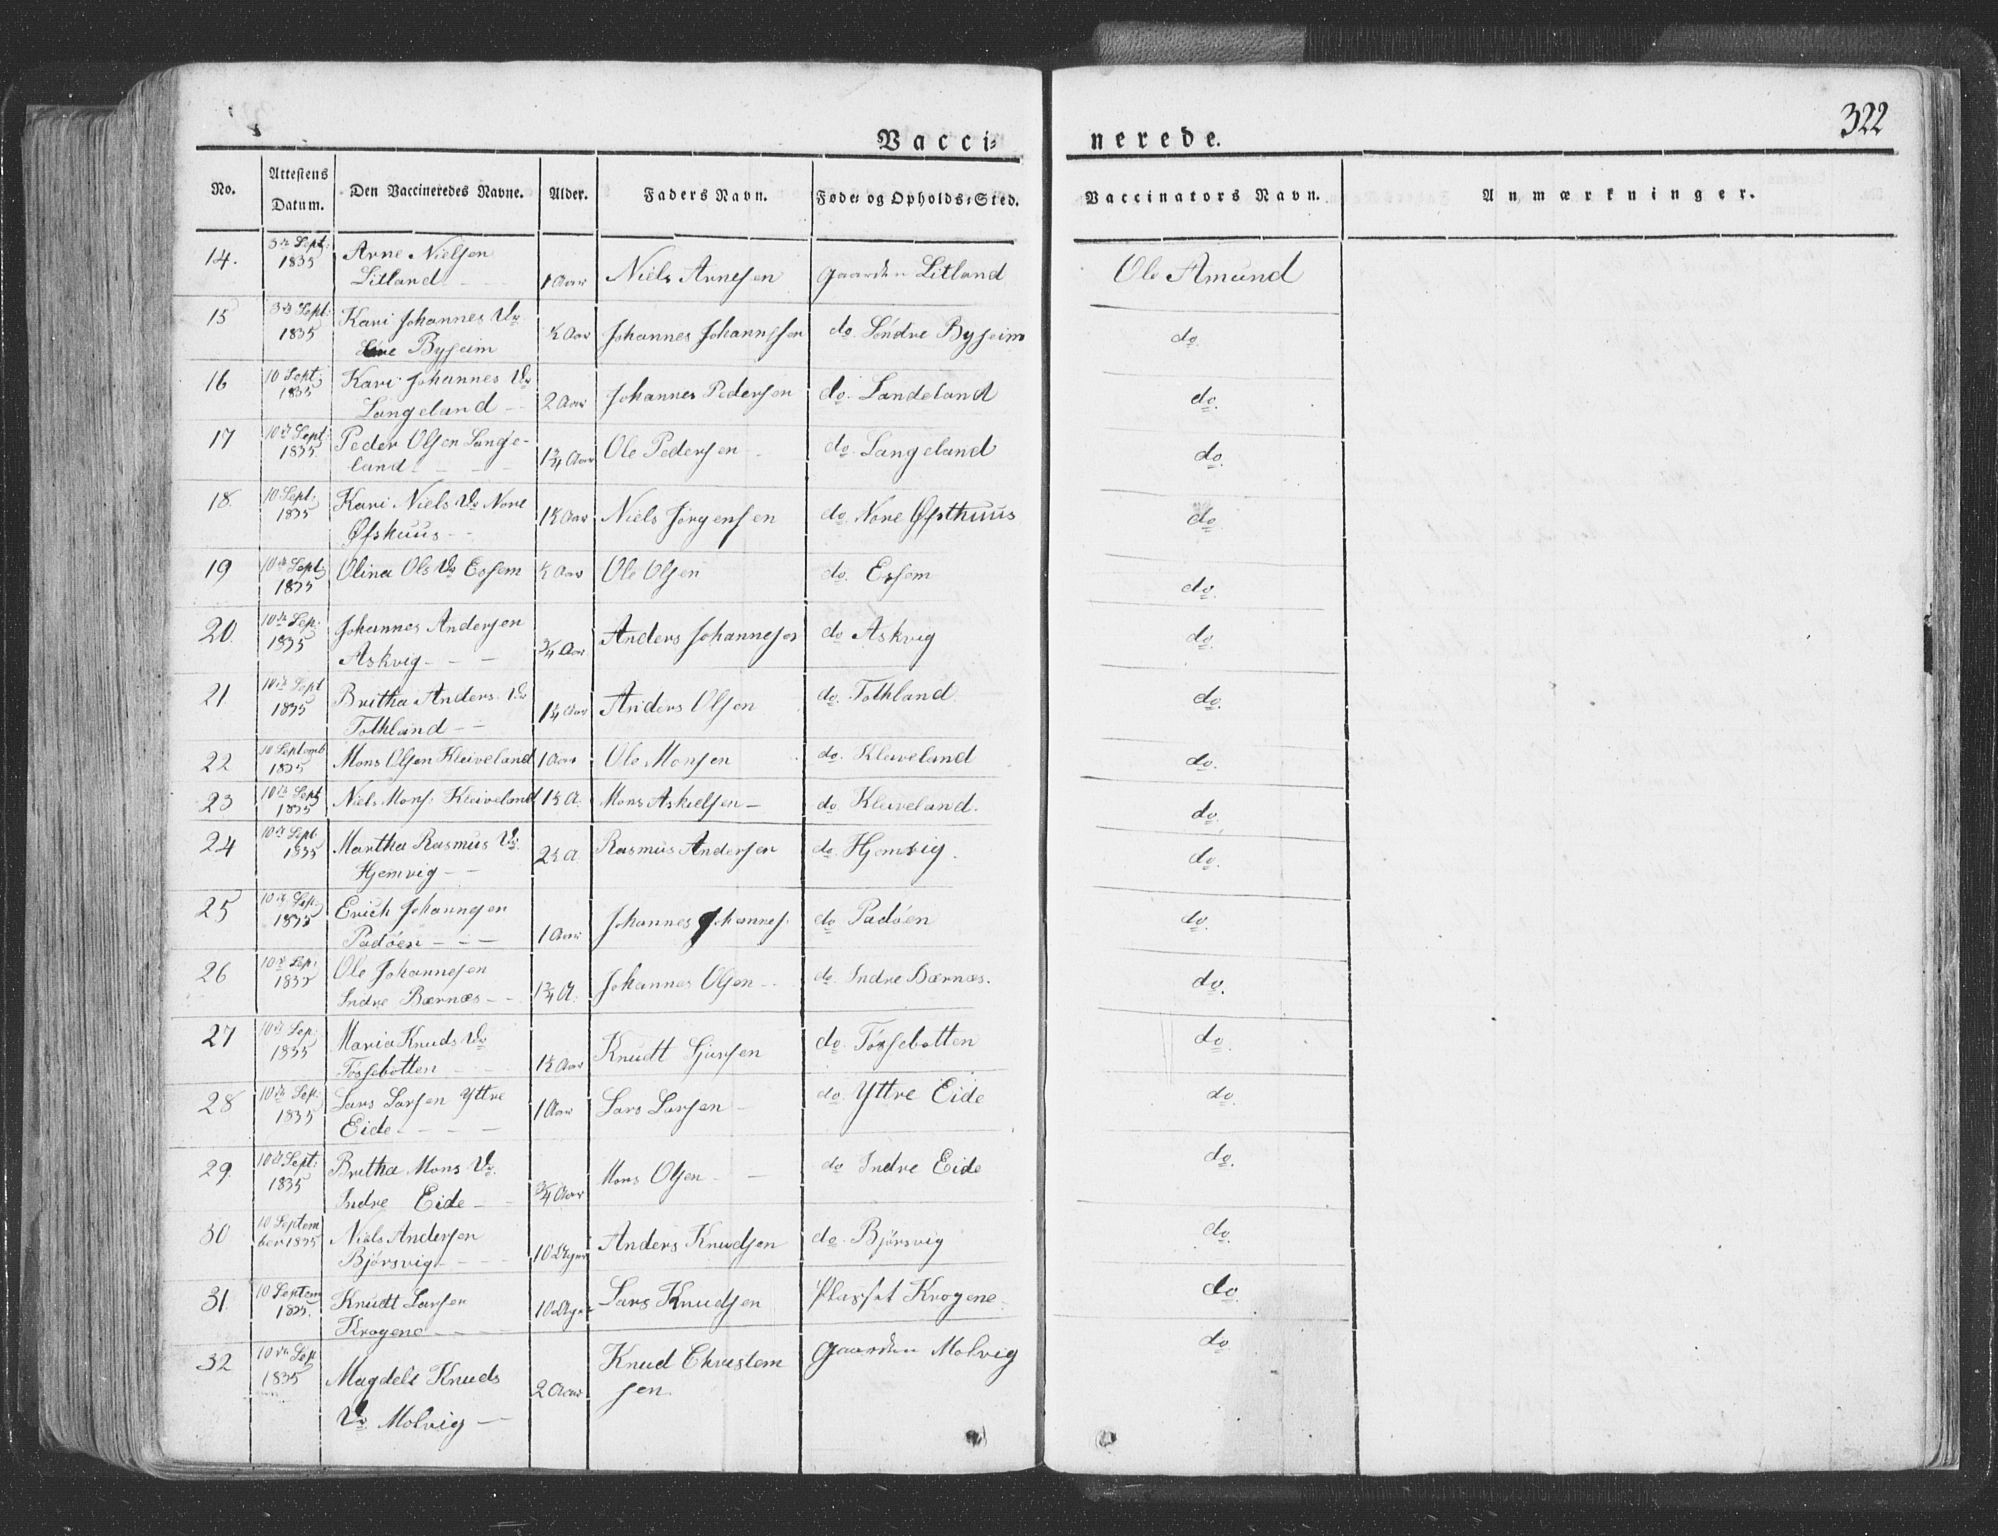 322
Vacci= nerede.
No. Attestens Datum. Den Vaccineredes Navne. Alder. Faders Navn. Føde= og Opholds=Sted. Vaccinators Navn. Anmærkninger.
14. 3die Sept: 1835 Arne Nielsen Litland 1 Aar Niels Arnesen gaarden Litland Ole Amund
15 3die Sept: 1835 Kari Johannes Dr. Byseim ½ Aar Johannes Johannessen do. Søndre Byseim do.
16 10 Sept: 1835 Kari Johannes Dr Langeland 2 Aar Johannes Pedersen do. Landeland do.
17 10de Sept: 1835 Peder Olsen Lange-land 1¾ Aar Ole Pedersen do. Langeland do.
18. 10 Sept: 1835 Kari Niels Dr Nore Øfsthuus 1½ Aar Niels Jørgensen do. Nore Øfsthuus do.
19 10de Sept 1835 Olina Ols Dr Essem ½ Aar Ole Olsen do. Essem do.
20. 10de Sep: 1835 Johannes Andersen Askvig ¾ Aar Anders Johannesen do Askvig do.
21. 10de Sept 1835 Britha Anders Dr Tothland 1¼ Aar Anders Olsen do. Tothland do.
22 10 Septemb 1835 Mons Olsen Kleiveland 1 Aar Ole Monsen do. Kleiveland do.
23 10de Sept 1835 Niels Mons: Kleiveland 1½ A. Mons Askielsen do Kleiveland. do.
24 10de Sept. 1835 Martha Rasmus Dr. Hjemvig 2½ A. Rasmus Andersen do Hjemvig. do.
25 10de Sep: 1835 Erich Johannesen Padøen 1 Aar Johannes Johannes. do Padøen do.
26 10de Sep: 1835 Ole Johannesen Indre Bærnæs 1¾ A. Johannes Olsen do Indre Bærnæs. do.
27 10de Sep: 1835 Maria Knuds Dr Tossebotten 1½ Aar Knudt Sjursen do. Tossebotten do.
28 10de Sep: 1835 Lars Larsen Yttre Eide 1 Aar Lars Larsen do. Yttre Eide do.
29. 10de Sept: 1835 Britha Mons Dr. Indre Eide ¾ Aar Mons Olsen do Indre Eide do.
30 10 Septem ber 1835 Niels Andersen Bjørsvig 10 Anders Knudsen do. Bjørsvig do.
31. 10 Septem 1835. Knudt Larsen Krogene 10 Lars Knudsen Plasset Krogene. do.
32 10de Sep 1835 Magdeli Knuds Dr Molvig 2 Aar Knud Christensen gaarden Molvig do